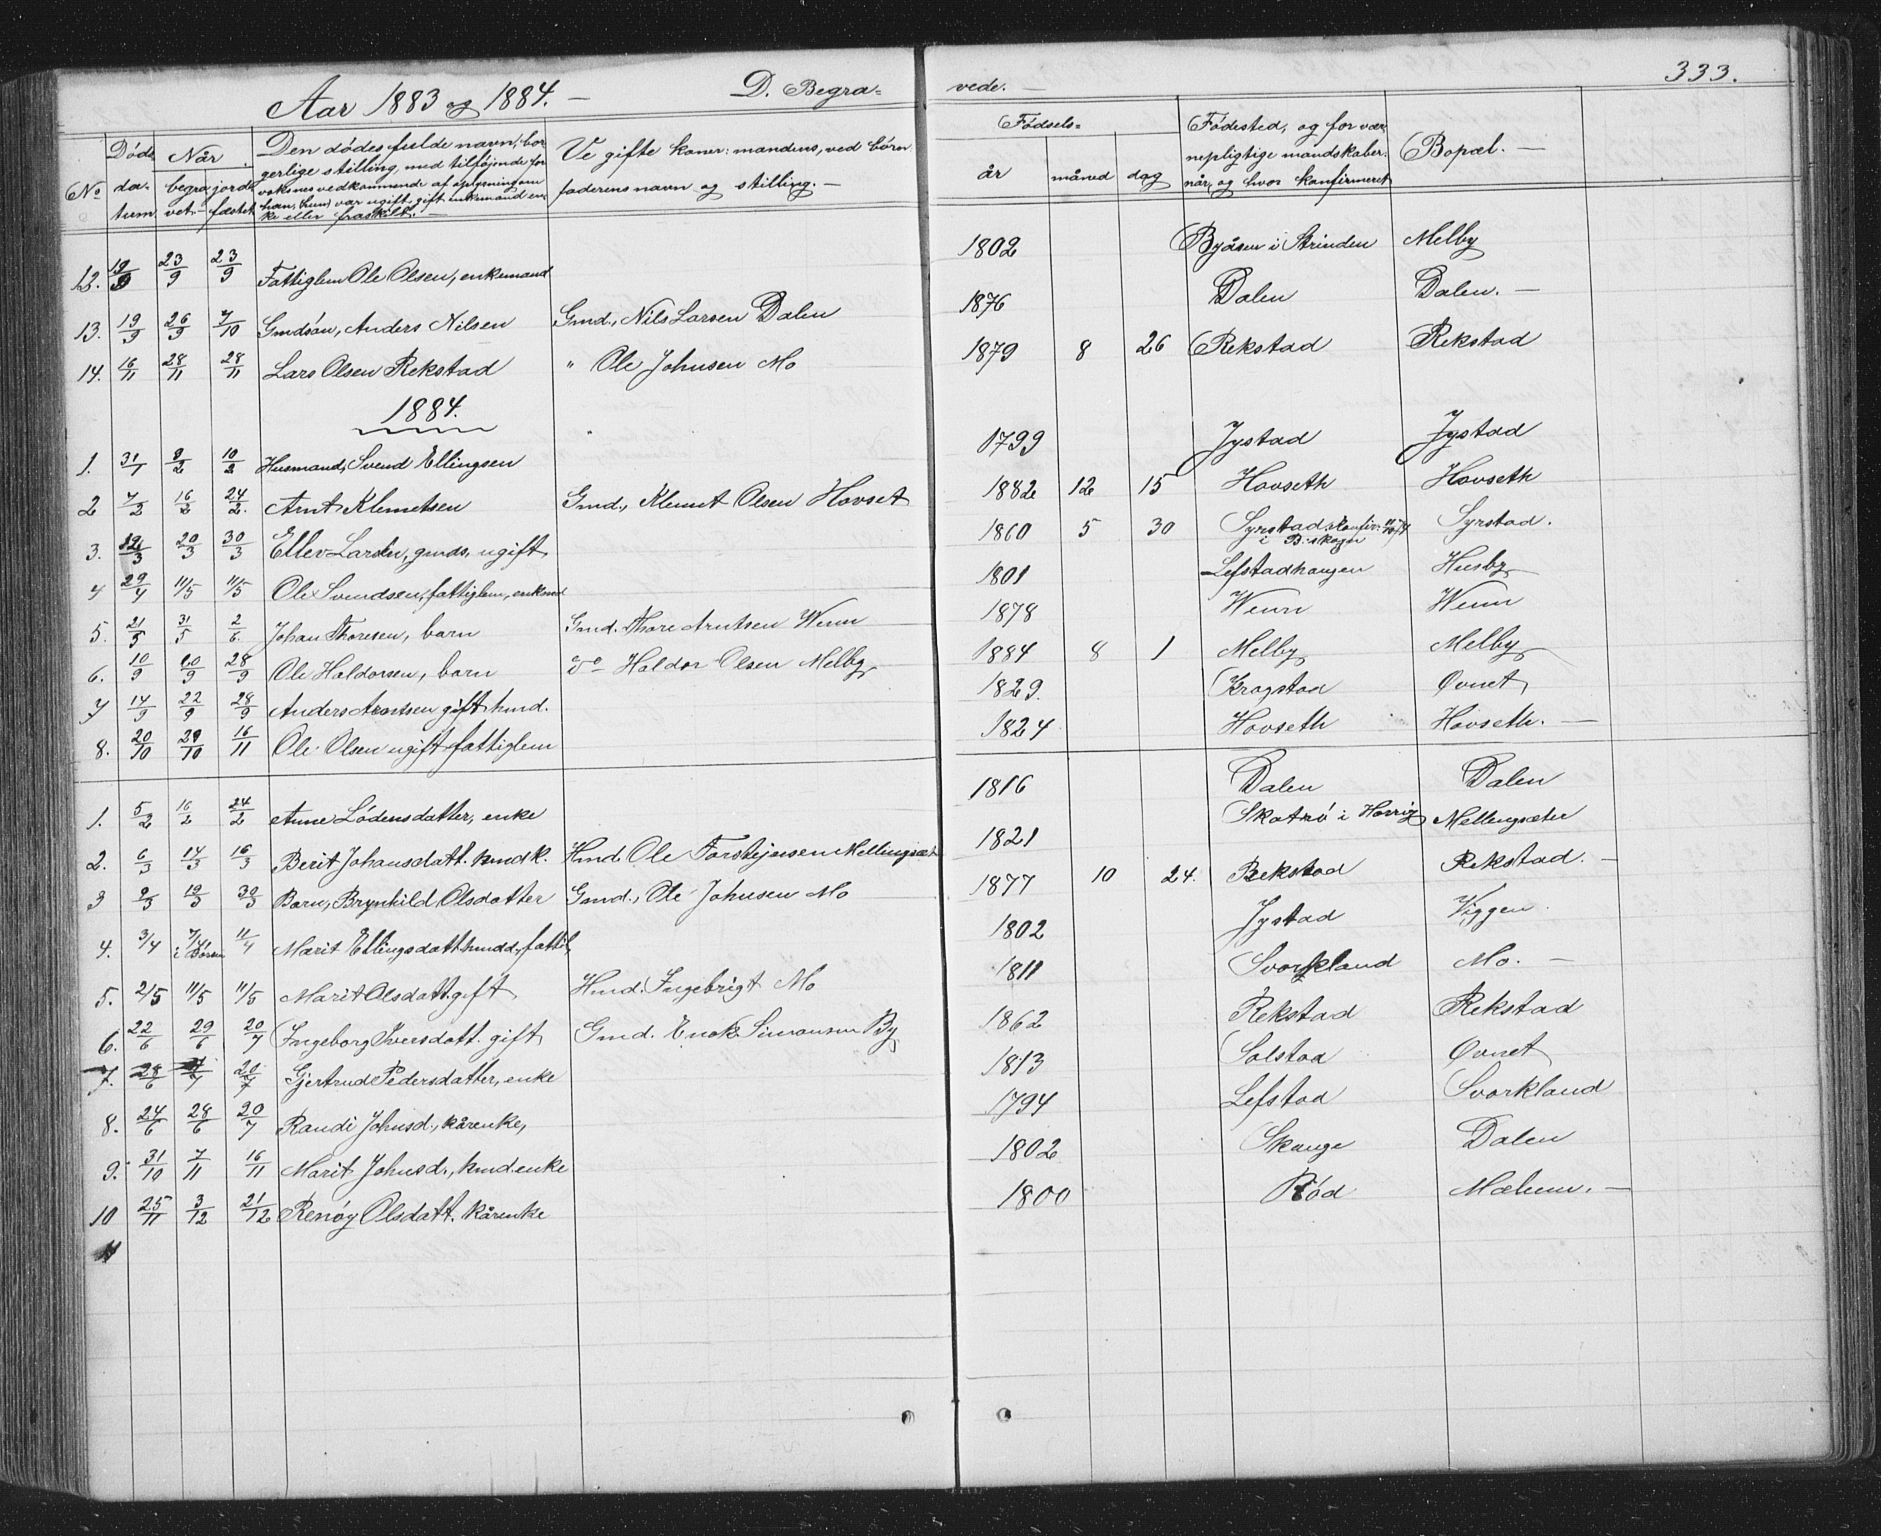 333.
Aar 1883 og 1884. — D. Begra= vede. —
No Døds datum Når begravet jordfæstet Den dødes fulde navn, borgerlige stilling, med tilføjende for voksnes vedkommende af oplysning om han, (hun) var ugift, gift, enkemand enke eller fraskilt. — Ve gifte koner: mandens, ved børn faderens navn og stilling. — Fødsels= år måned dag Fødested, og for værnepligtige mandskaber når og hvor konfirmeret Bopæl. —
12. 19/9 23/9 23/9 Fattiglem Ole Olsen, enkemand 1802 Byåsen i Strinden Melby
13. 19/9 26/9 7/10 Gmdsøn, Anders Nilsen Gmd., Nils Larsen Dalen 1876 Dalen Dalen. —
14. 16/11 28/11 28/11 Lars Olsen Rekstad " Ole Johnsen Mo 1879 8 26 Rekstad Rekstad
1884.
1. 31/1 9/2 10/2 Husmand, Svend Ellingsen 1799 Jystad Jystad
2 7/2 16/2 24/2. Arnt Klemetsen Gmd., Klemet Olsen Hovset 1882 12 15 Hovseth Hovseth
3. 12/3 20/3 30/3 Ellev Larsen, gmds. ugift 1860 5 30 Syrstad konfir. i B.skogn Syrstad.
4 29/4 11/5 11/5 Ole Svendsen, fattiglem, enkemd 1801 Lefstadhaugen Husby
5. 21/5 31/5 2/6. Johan Thoresen, barn Gmd. Thore Arntsen Wenn 1878 Wenn Wenn
6. 10/9 20/9 28/9 Ole Haldorsen, barn do Haldor Olsen Melby 1884 8 1 Melby Melby
7 14/9 22/9 28/9 Anders Arntsen gift hmd. 1829. Krogstad Øvnet
8. 20/10 29/10 16/11 Ole Olsen ugift fattiglem 1824 Hovseth Hovseth. —
1. 5/2 16/2 24/2 Anne Lødensdatter, enke 1816 Dalen Dalen
2. 6/3 14/3 16/3 Berit Johansdatt. hmdk. Hmd. Ole Torstejnsen Mellingsæt 1821 Skatrø i Horrig Mellingsæter
3 9/3 19/3 30/3 Barn, Brynhild Olsdatter Gmd., Ole Johnsen Mo 1877 10 24. Rekstad Rekstad. —
4. 3/4 7/4 i Børsen 11/4 Marit Ellingsdatt hmdd, fattil, 1802 Jystad Viggen
5. 2/5 11/5 11/5 Marit Olsdatt. gift Hmd. Ingebrigt Mo 1811 Svorkland Mo. —
6. 22/6 29/6 20/7 Ingeborg Iversdatt. gift Gmd. Enok Simonsen By 1862 Rekstad Rekstad
7. 28/6 20/7 Gjertrud Pedersdatter, enke 1813 Solstad Øvnet
8. 24/6 28/6 20/7 Randi Johnsd., kårenke, 1794 Lefstad Svorkland
9. 31/10 7/11 16/11 Marit Johnsd., hmdenke 1802 Skauge Dalen
10 25/11 3/12 21/12 Renøy Olsdatt. kårenke 1800 Rød Mælum. —